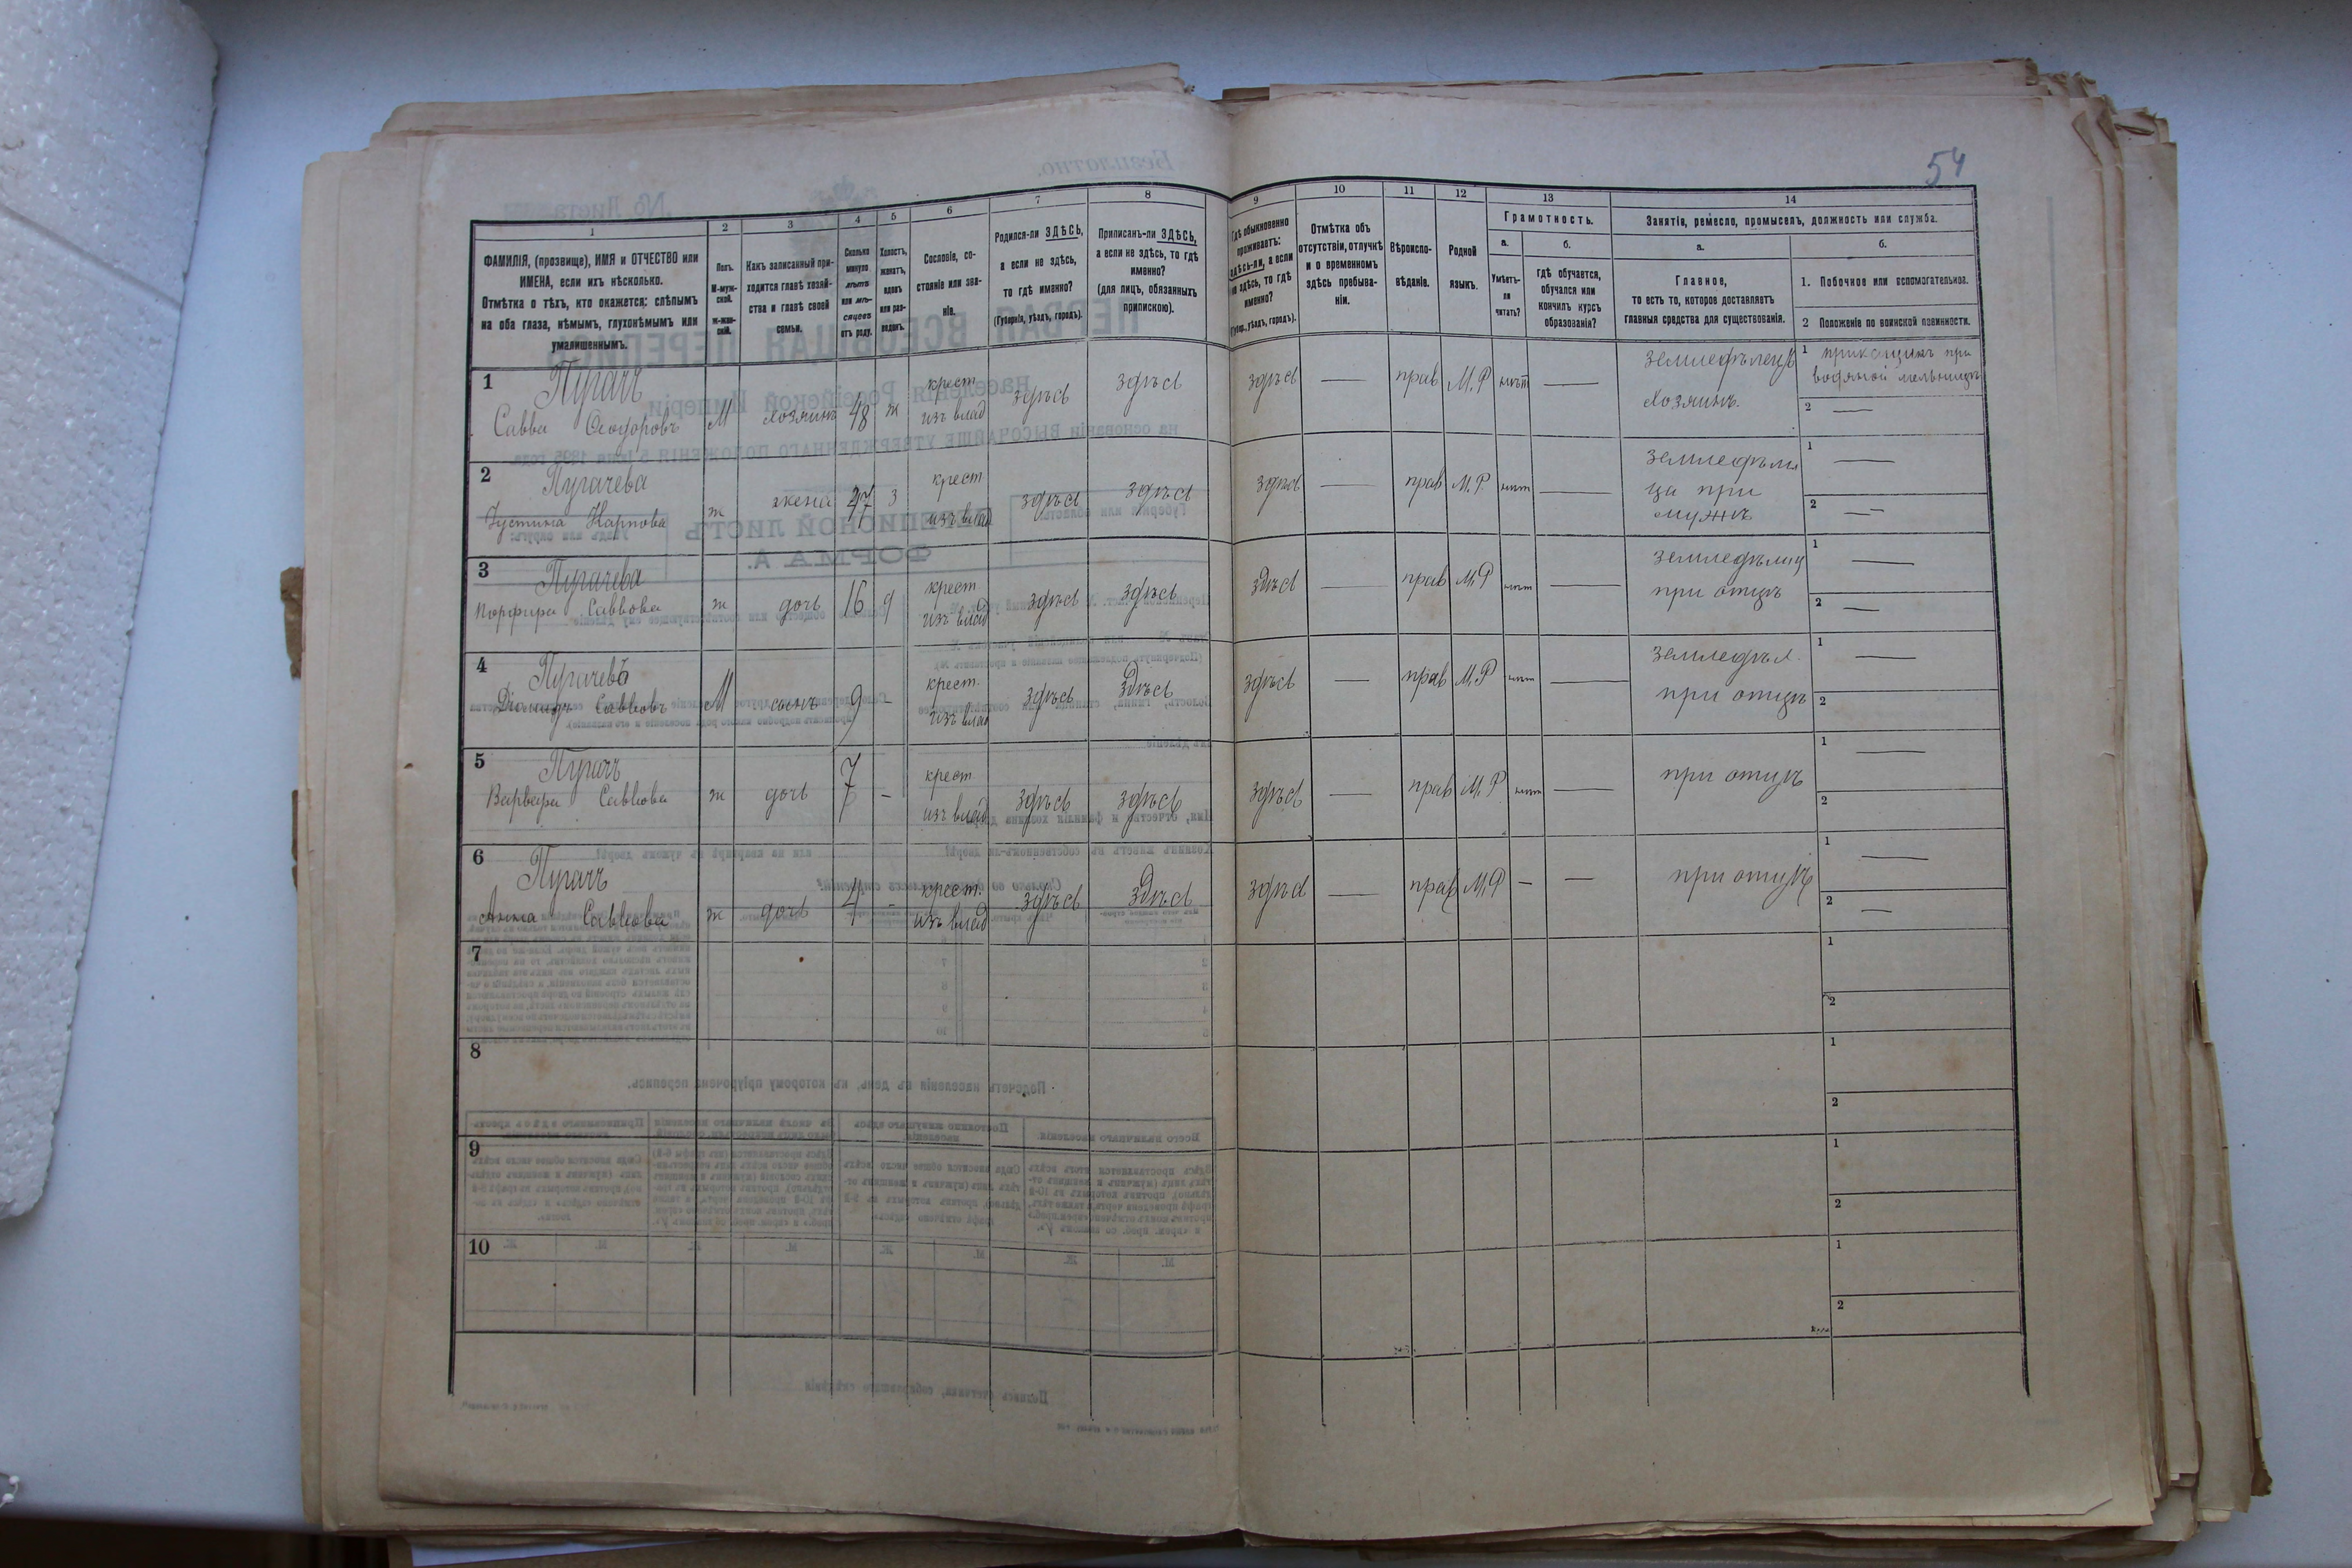 54
1
2
3
4
5
6
7
8
9
10
11
12
13
14
ФАМИЛІЯ, (прозвище), ИМЯ и ОТЧЕСТВО или
ИМЕНА, если ихъ нѣсколько.
Отмѣтка о тѣхъ, кто окажется: слѣпымъ
на оба глаза, нѣмымъ, глухонѣмымъ или
умалишеннымъ.
Полъ.
М-муж-
ской.
ж-жен-
скій.
Какъ записанный при-
ходится главѣ хозяй-
ства и главѣ своей
семьи.
Сколько
минуло
лѣтъ
или мѣ-
сяцевъ
отъ роду.
Холостъ,
женатъ,
вдовъ
или раз-
веденъ.
Сословіе, со-
стояніе или зва-
ніе.
Родился-ли ЗДѢСЬ,
а если не здѣсь,
то гдѣ именно?
(Губернія, уѣздъ, городъ).
Приписанъ-ли ЗДѢСЬ,
а если не здѣсь, то гдѣ
именно?
(для лицъ, обязанныхъ
припискою).
Гдѣ обыкновенно
проживаетъ:
здѣсь-ли, а если
не здѣсь, то гдѣ
именно?
(Губер., уѣздъ, городъ).
Отмѣтка объ
отсутствіи, отлучкѣ
и о временномъ
здѣсь пребыва-
ніи.
Вѣроиспо-
вѣданіе.
Родной
языкъ.
Грамотность.
а.
б.
Умѣетъ-
ли
читать?
гдѣ обучается,
обучался или
кончилъ курсъ
образованія?
Занятія, ремесло, промыселъ, должность или служба.
а.
б.
Главное,
то есть то, которое доставляетъ
главныя средства для существованія.
1. Побочное или вспомогательное.
2 Положеніе по воинской повинности.
1
Пугачъ
Савва Ѳеодоровъ М хозяинъ 48 ж крест изъ влад здѣсь здѣсь здѣсь — прав М.Р нѣтъ — землефѣлецъ хозяинъ.
1 прикащикъ при
водяной мельницѣ
2 —
2
Пугачева
Іустина Карпова ж жена 47 з крест изъ влад здѣсь здѣсь здѣсь — прав М.Р. нѣтъ —
1 —
2 —
3
Пугачева
Порфира Саввова ж дочь 16 д крест изъ влад здѣсь здѣсь здѣсь — прав М.Р нѣтъ — земледѣлиц при отцѣ
1 —
2 —
4
Пугачевъ
Діомидъ Саввовъ М сынъ 9 - крест. изъ влад здѣсь здѣсь здѣсь — прав М.Р нѣтъ — земледѣл. при отцѣ
1 —
2
5
Пугачъ
Варвара Саввова ж дочь 7 - крест изъ влад здѣсь здѣсь здѣсь — прав М.Р нѣтъ — при отцѣ
1 —
2
6
Пугачъ
Анна Саввова ж дочь 4 - крест. изъ влад здѣсь здѣсь здѣсь — прав М.Р — — при отцѣ
1 —
2 —
7
1
2
8
1
2
9
1
2
10
1
2